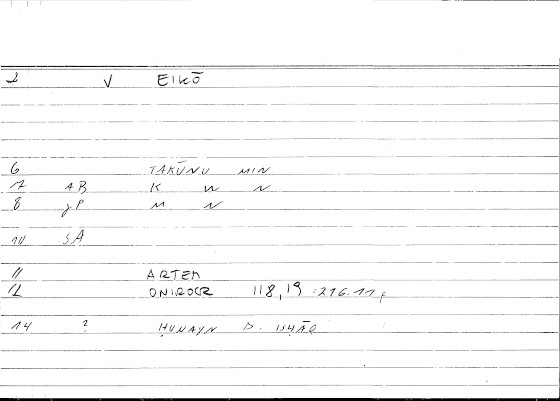 2 V EIKŌ
6 TAKŪNU MIN
7 AB K W N
8 jP M N
10 SA
11 ARTEM
12 ONIROCR 118,19 :216.11,
14 ? ḤUNAYN B. ISḤĀQ